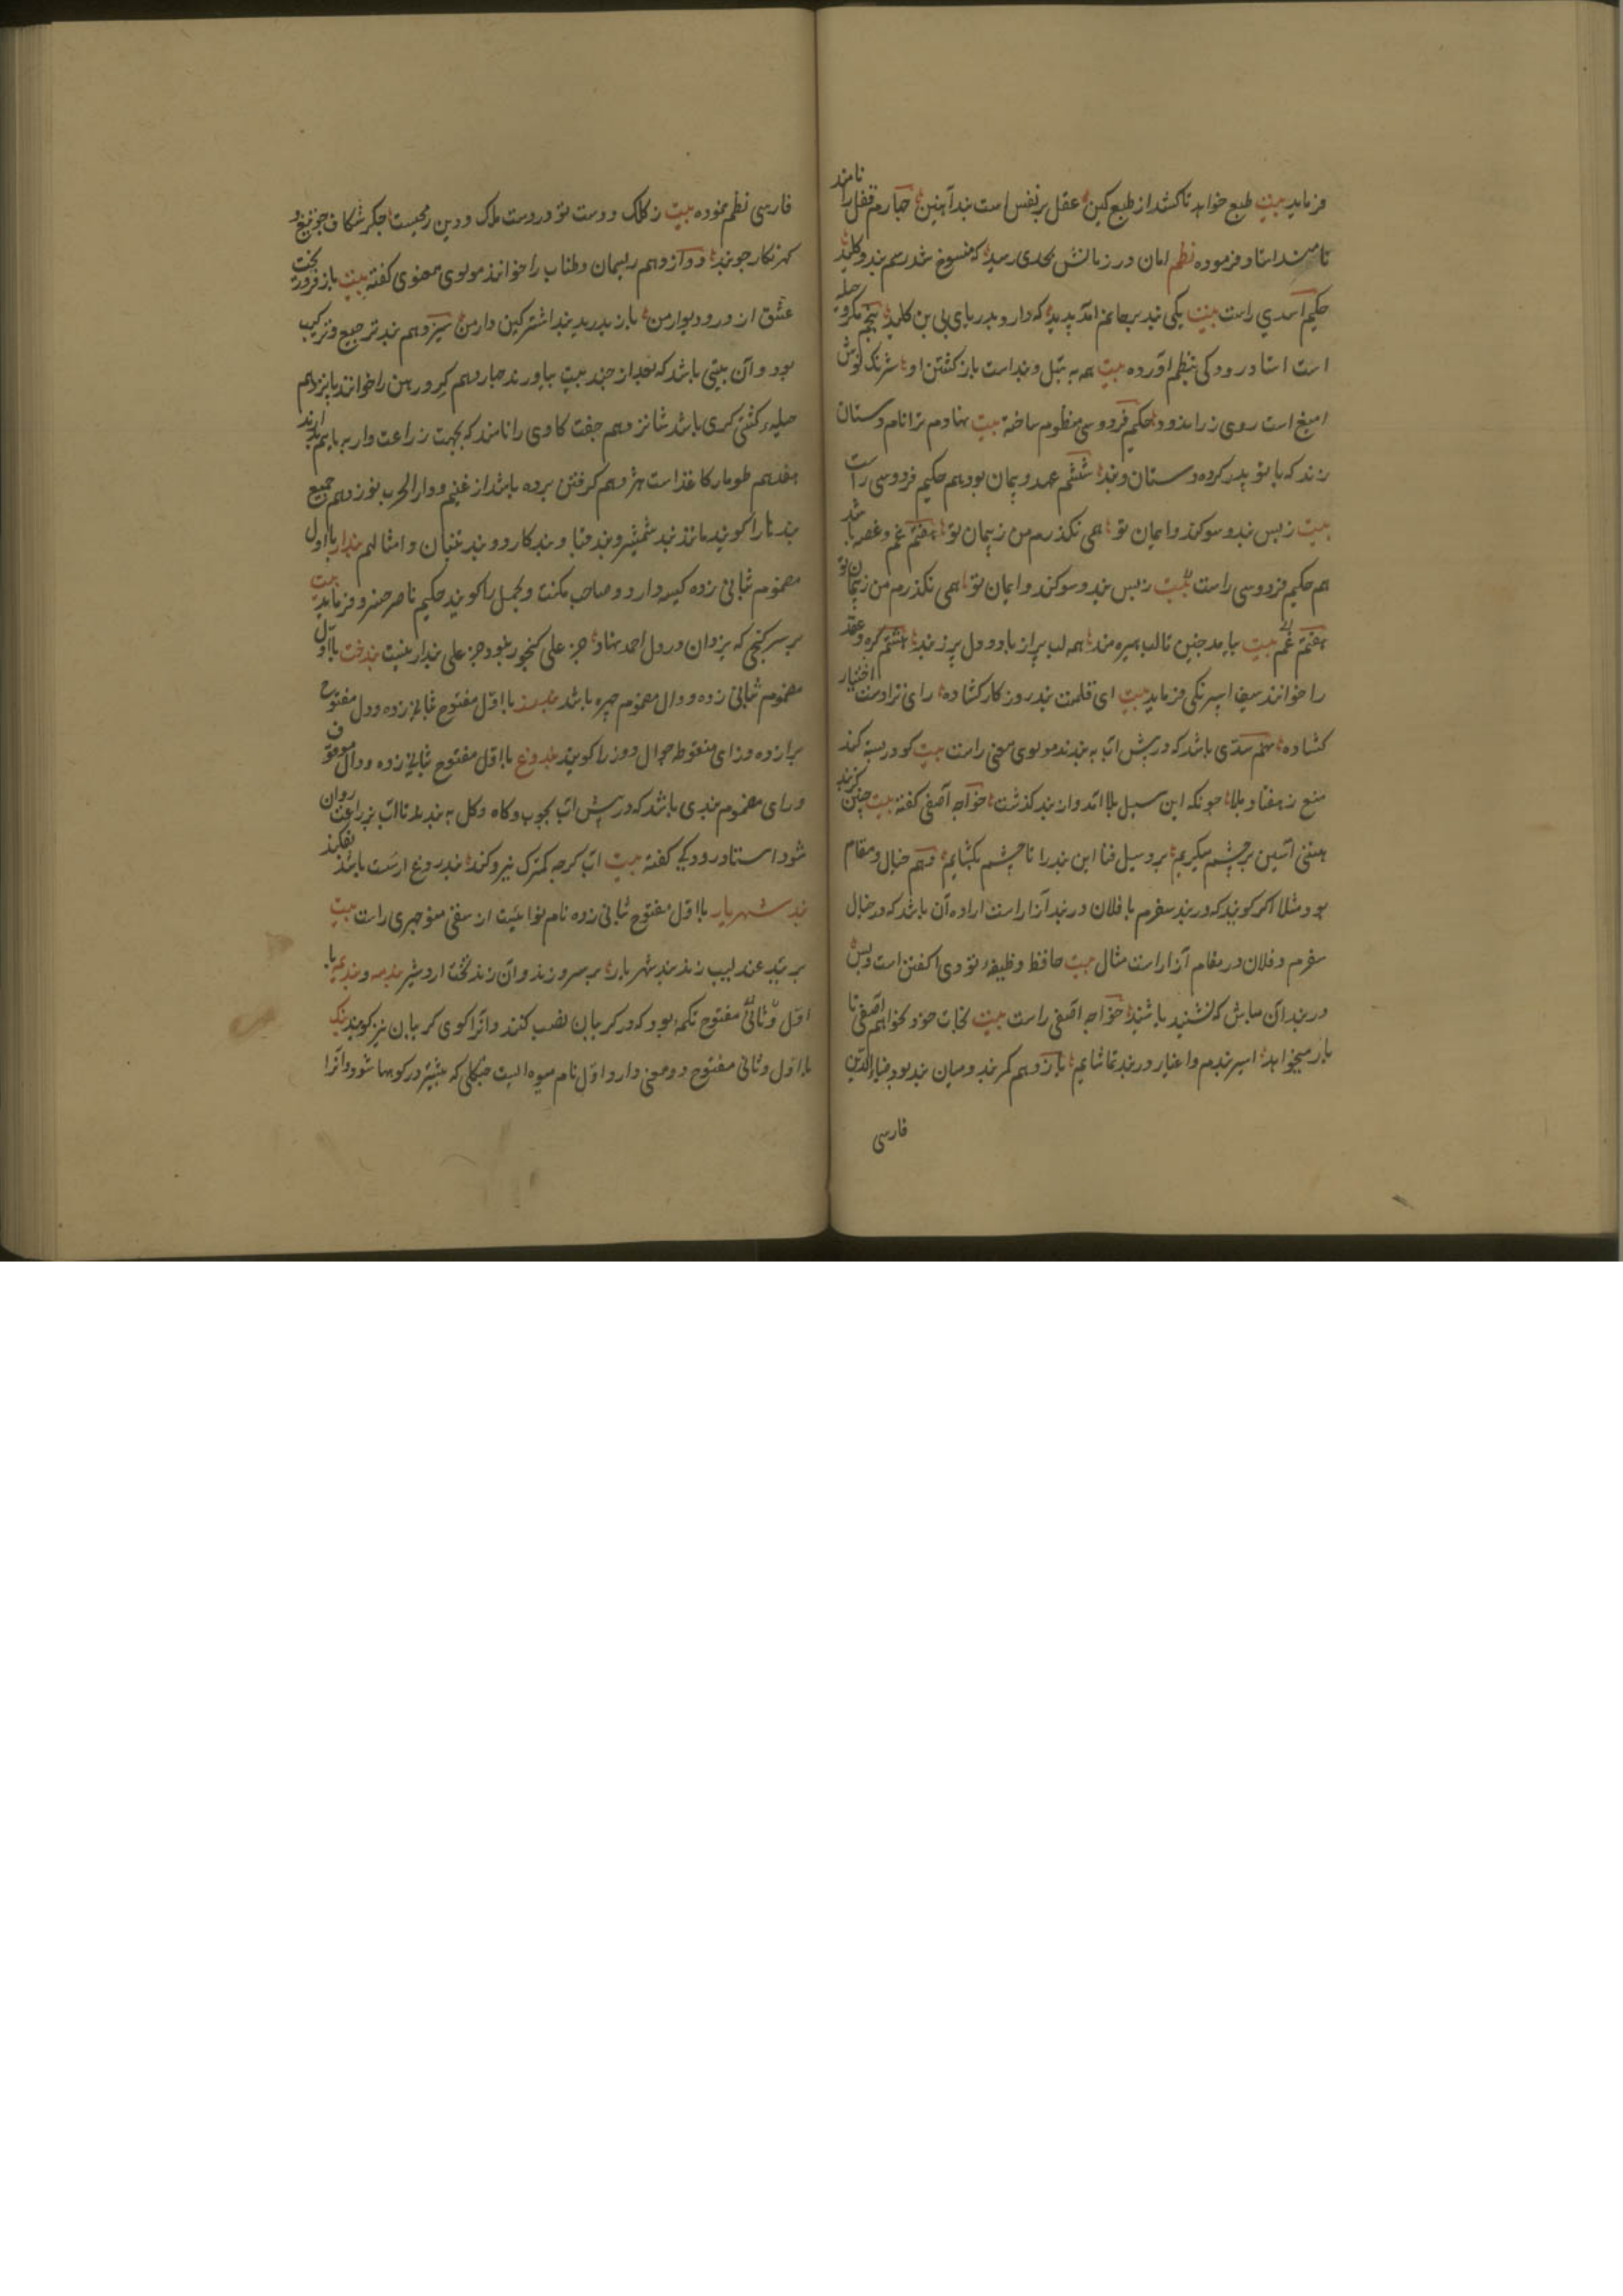 فرماید بیت طبع خواهد تا کشد از طبع کین عقل بر نفس است بند آهنین چهارم قفل را نامند
نامند استاد فرموده نظم امان در زمانش بحدی رسید که منسوخ شد رسم بند و کلید
حکیم اسدی راست بیت یکی بند بر جانم آمد پدید که دارو بدریای بی بن کلید پنجم مکر و حیله
است استاد رودکی بنظم آورده بیت همه به تنبل و بند است بازکشتن او شرنک نوش
امیغ است روی زراندود حکیم فردوسی منظوم ساخته بیت نهادم ترا نام دستان
زند که با تو پدر کرد دستان و بند ششم عهد و پیمان بود هم حکیم فردوسی راست
بیت ز بس بند و سوکند و ایمان تو همی نکذرم من ز پیمان تو هفتم غم و غصه باشد
هم حکیم فردوسی راست بیت ز بس بند و سوکند و ایمان تو همی نکذرم من ز پیمان تو
هفتم غم بیت بیامد چنین تا لب هیرمند همه لب پر از باد و دل پر ز بند هشتم کره و عقد
را خوانند سیف اسپرنکی فرماید بیت ای قلمت بند روزکار کشاده رای تو از دست اختیار
کشاده نهم سدی باشد که در پیش آب به بندند مولوی معنوی راست بیت کو در بسته کند
منع ز هفتاد بلا چونکه این سیل بلا آمد و از بند کذشت خواجه آصفی کفته بیت چنین کزند
ببینی آستین بر چشم میکریم بروی سیل فنا این بند را تا چشم بکشایم دهم خیال و مقام
بود مثلا اکر کویند که در بند سفرم یا فلان در بند آزار است اراده آن باشد که در خیال
سفرم و فلان در مقام آزار است مثال بیت حافظ وظیفه تو دعا کفتن است و بس
در بند آن مباش که نشنید یا شنید خواجه آصفی راست بیت نجات خود نخواهم آصفی تا
یار میخواهد اسیر بندم و اغیار در بند تماشایم یازدهم کمربند و میان بند بود ضیاءالدین
فارسی
فارسی نظم نموده بیت ز کلک و دست تو در دست ملک و دین رمحیست جکر شکاف چو تیغ و
کهرنکار چو بند دوازدهم ریسمان و طناب را خوانند مولوی معنوی کفته بیت باز فرو ریخت
عشق از در و دیوار من باز بدرید بند اشتر کین دار من سیزدهم بند ترجیع و ترکیب
بود و آن بیتی باشد که بعد از چند بیت بیاورند چهاردهم کرو و رهن را خوانند پانزدهم
حیله کشتی کری باشد شانزدهم جفت کاوی را نامند که بجهت زراعت و ارابه بهم بندند
هفدهم طومار کاغذ است هژدهم کرفتن برده باشد از غنیم و دار الحرب نوزدهم جمیع
بندها را کویند مانند بند شمشیر و بند قبا و بند کارد و بند تنبان و امثالهم بندار با اول
مضموم ثانی زده کیسه دار و صاحب مکنت و تجمل را کویند حکیم ناصر خسرو فرماید بیت
بر سر کنجی که یزدان در دل احمد نهاد جز علی کنجور نبود جز علی بندار نیست بندخت با اول
مضموم ثانی زده و دال مضموم چهره باشد با اول مفتوح ثانی زده و دال مفتوح
برا زده و زای منقوطه جوال دوز را کویند بندروغ با اول مفتوح ثانی زده و دال موقوف
و رای مضموم بندی باشد که در پیش آب بچوب و کاه و کل به بندند تا آب بزراعت روان
شود استاد رودکی کفته بیت آب کرچه کمترک نیرو کند بندروغ ارست باشد بفکند
بند شهریار با اول مفتوح ثانی زده نام نوائیست از منوچهری راست بیت
بر بید عندلیب زند بند شهریار بر سرو زند واف زند تخت اردشیر بندمه و بندیمه با
اول و ثانی مفتوح تکمه بود که در کریبان نصب کنند و آنرا کوی کریبان نیز کویند بنک
با اول و ثانی مفتوح دو معنی دارد اول نام میوه ایست جنکلی که بیشتر در کوهها شود و آنرا